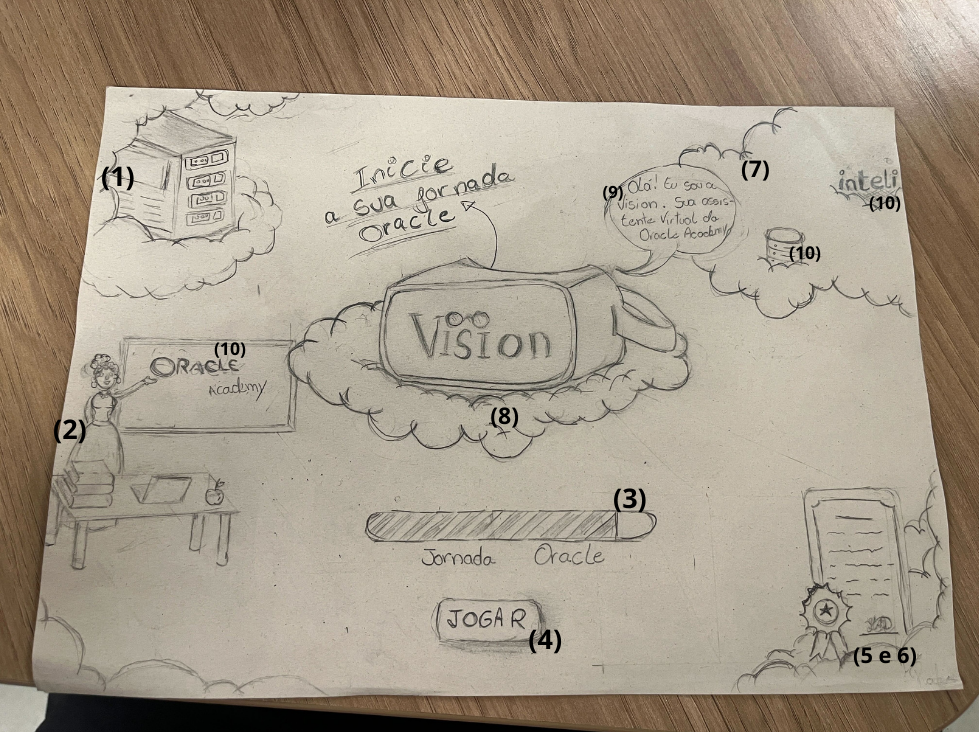 (1)
Inicie
a sua jornada
Oracle
(9) Olá! Eu sou a
Vision. Sua assis-
tente Virtual da
Oracle Academy
(7)
inteli
(10)
(10)
Vision
(8)
(10)
ORACLE
Academy
(2)
(3)
Jornada Oracle
JOGAR
(4)
(5 e 6)